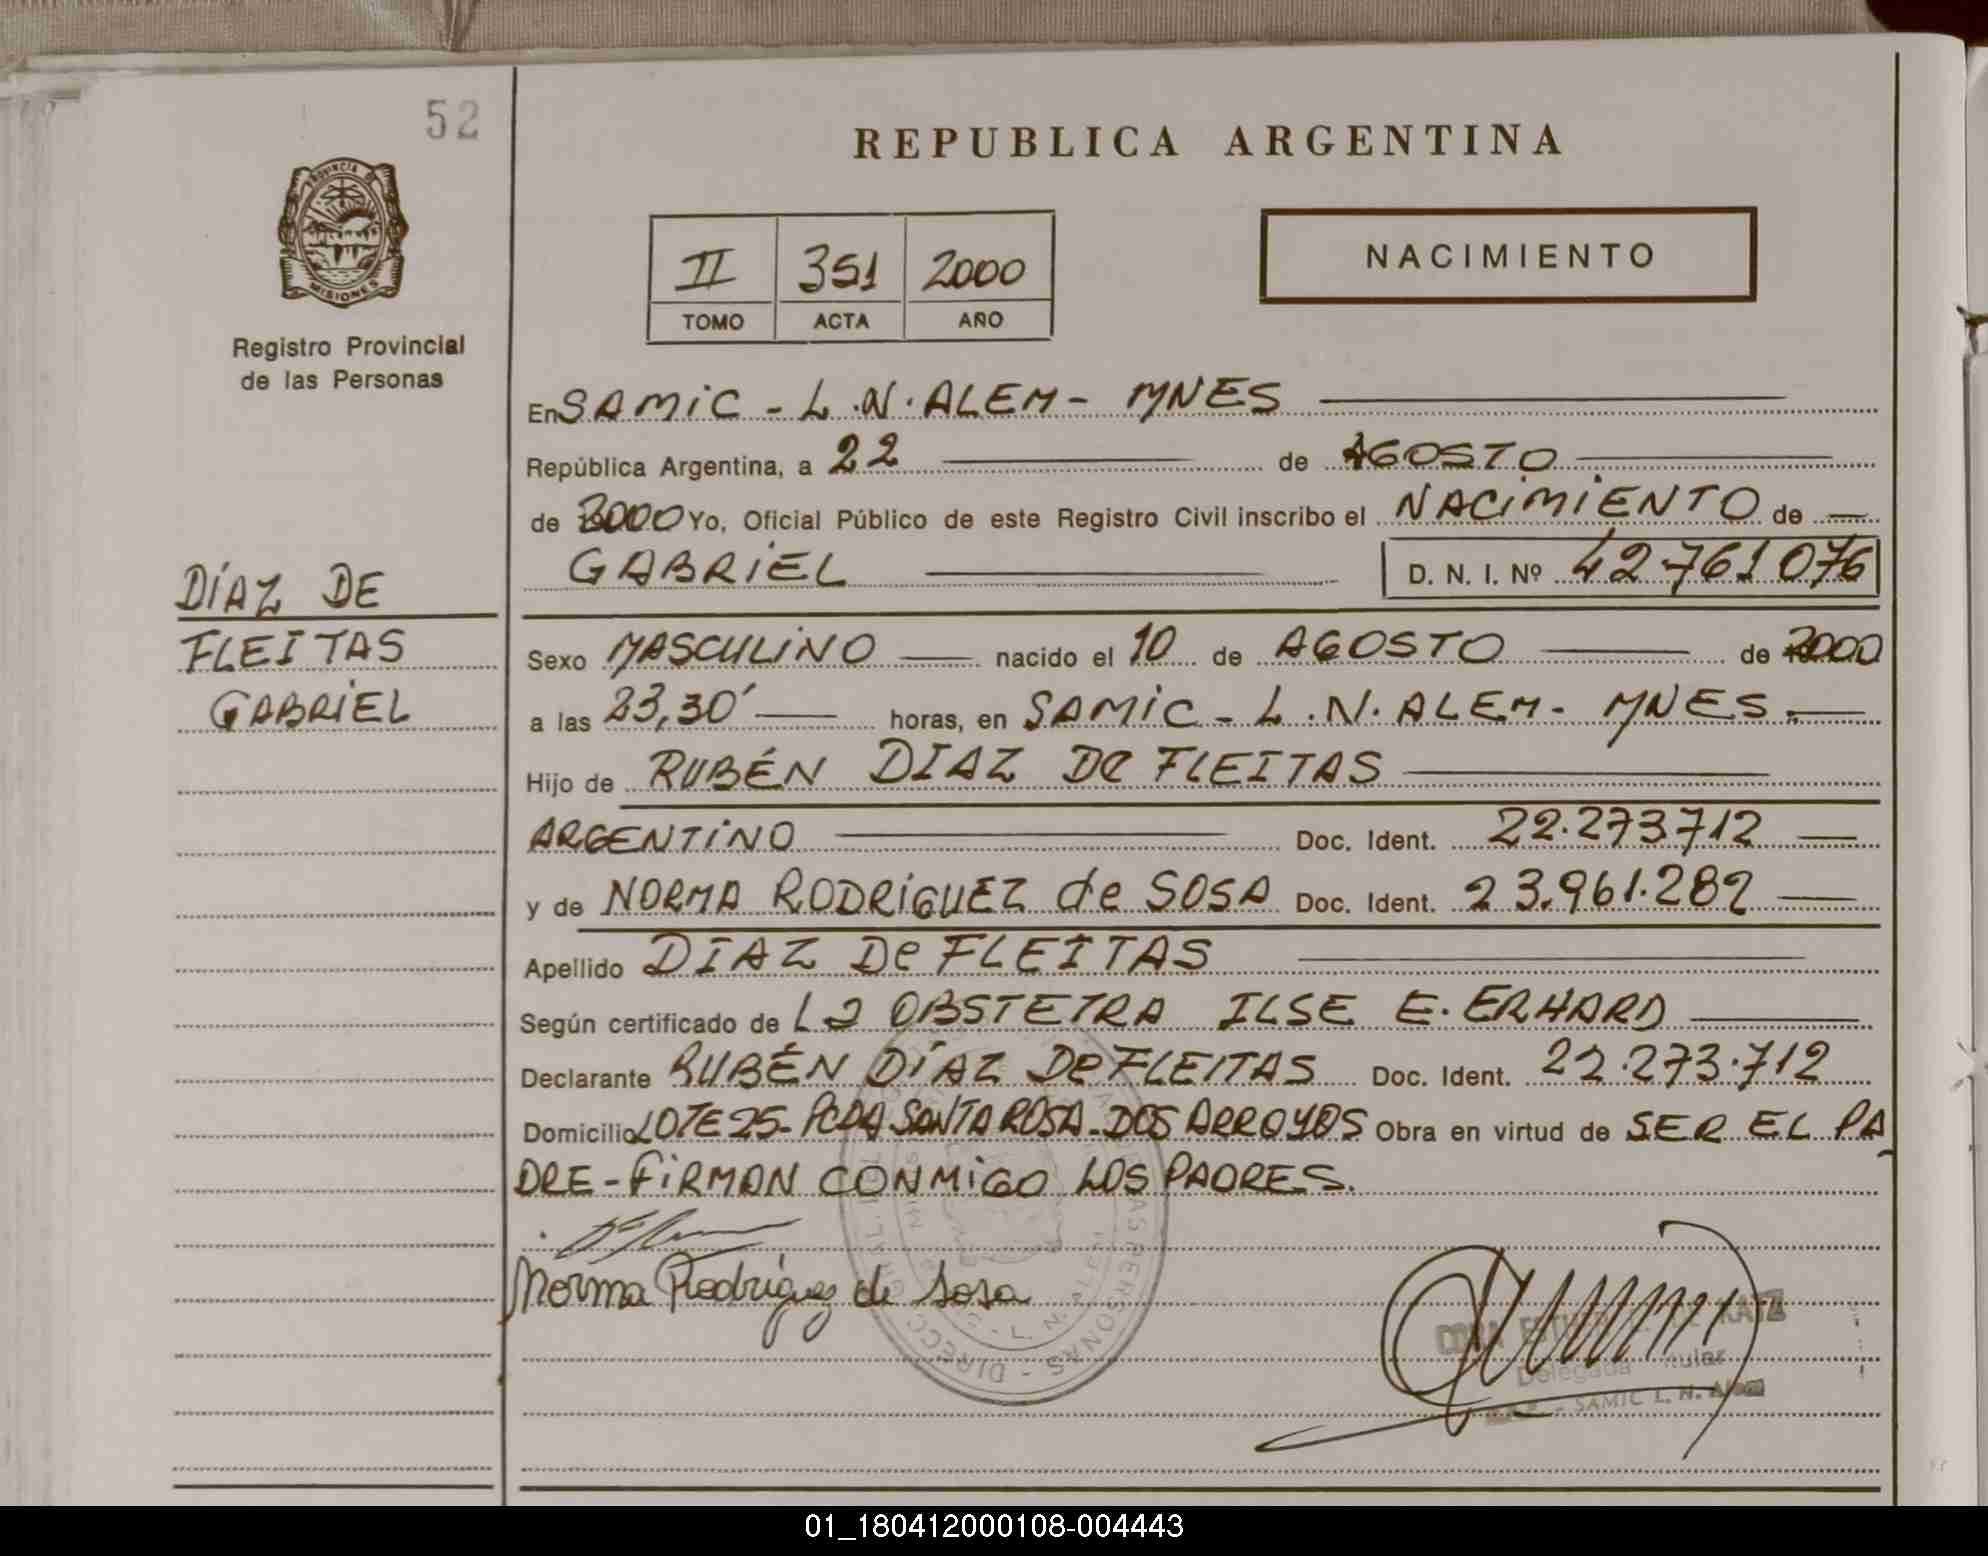 52
REPUBLICA ARGENTINA
PROVINCIA DE
MISIONES
II 351 2000
TOMO ACTA AÑO
NACIMIENTO
Registro Provincial
de las Personas
En SAMIC - L.N. ALEM - MNES
República Argentina, a 22 de AGOSTO
de 2000 Yo, Oficial Público de este Registro Civil inscribo el NACIMIENTO de
GABRIEL D. N. I. Nº 42761076
DÍAZ DE
FLEITAS
GABRIEL
Sexo MASCULINO nacido el 10 de AGOSTO de 2000
a las 23,30' horas, en SAMIC - L.N. ALEM - MNES.
Hijo de RUBÉN DIAZ De FLEITAS
ARGENTINO Doc. Ident. 22.273712
y de NORMA RODRIGUEZ de SOSA Doc. Ident. 23.961.282
Apellido DIAZ De FLEITAS
Según certificado de La OBSTETRA ILSE E. ERHARD
Declarante RUBÉN DÍAZ De FLEITAS Doc. Ident. 22.273.712
Domicilio LOTE 25- PCDA SANTA ROSA - DOS ARROYOS Obra en virtud de SER EL PA
DRE - FIRMAN CONMIGO LOS PADRES.
Norma Rodriguez de Sosa
ESTHER KATZ
Delegada Titular
SAMIC L. N. Alem
01_180412000108-004443